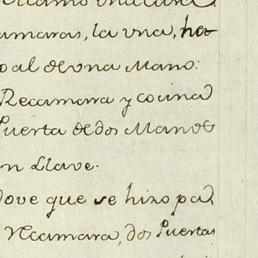 amaras, la vna, ha
o al de vna Mano:
Recamara y cocina
Puerta de dos Manos
n Llave.
dove que se hizo pa
Recamara, dos Puertas